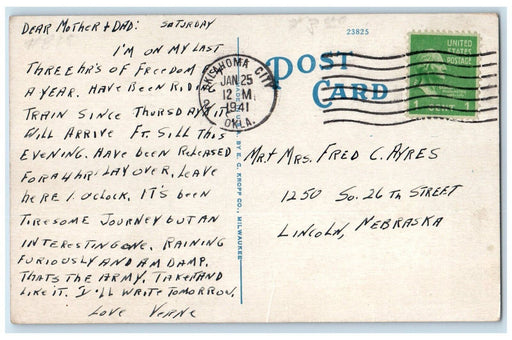 DEAR MOTHER + DAD: SATURDAY
I'M ON MY LAST
THREE HR'S OF FREEDOM
A YEAR. HAVE BEEN RIDIN
TRAIN SINCE THURSDAY IT
WILL ARRIVE FT. SILL THIS
EVENING. HAVE BEEN RELEASED
FOR A 4 HR. LAY OVER, LEAVE
HERE 1 O'CLOCK. IT'S BEEN
TIRESOME JOURNEY BUT AN
INTERESTING ONE. RAINING
FURIOUSLY AND AM DAMP.
THATS THE ARMY. TAKE AND
LIKE IT. I'LL WRITE TOMORROW.
LOVE VERNE
OKLAHOMA CITY
JAN 25
12 M
1941
OKLA.
23825
POST
CARD
UNITED
STATES
POSTAGE
1 CENT 1
BY E. C. KROPP CO., MILWAUKEE
MR + MRS. FRED C. AYRES
1250 SO. 26 TH STREET
LINCOLN, NEBRASKA